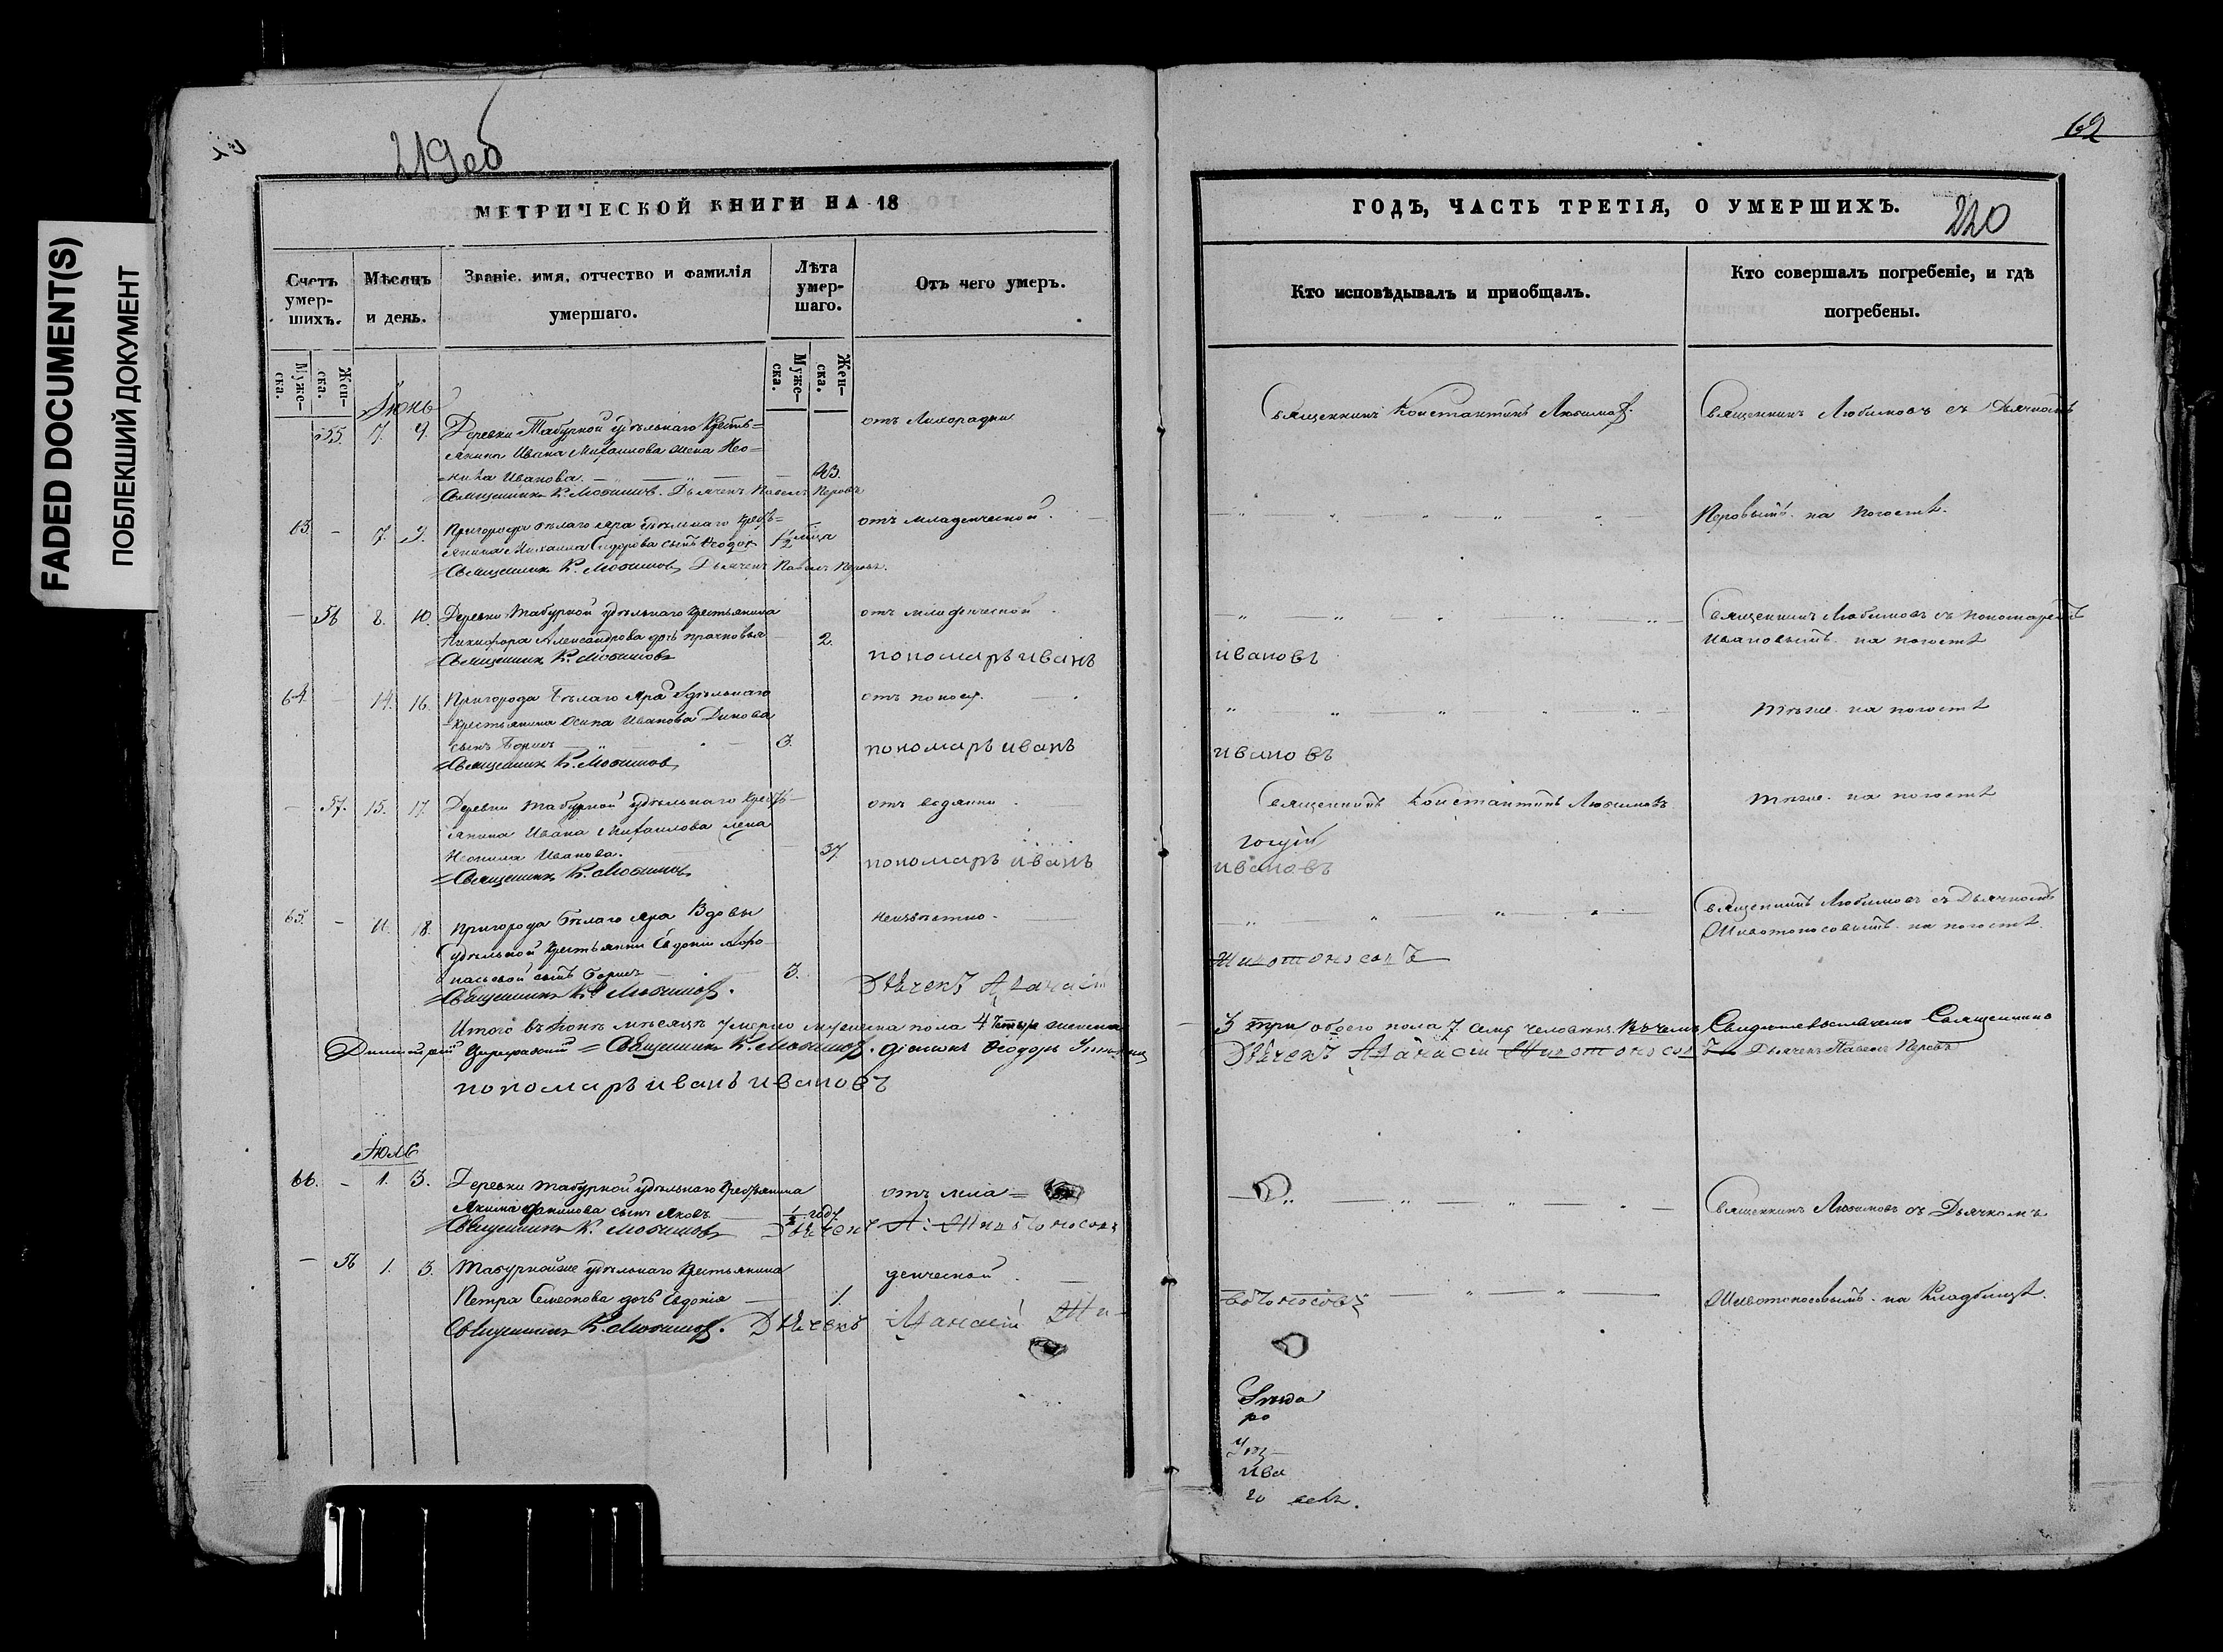 FADED DOCUMENT(S)
ПОБЛЕКШИЙ ДОКУМЕНТ
219об
МЕТРИЧЕСКОЙ КНИГИ НА 18
Счетъ умер-шихъ.
Мѣсяцъ и день.
Званіе, имя, отчество и фамилія умершаго.
Лѣта умер-шаго.
Отъ чего умеръ.
Муже-ска.
Жен-ска.
Муже-ска.
Жен-ска.
Іюнь
55. 7. 9. Деревни Табурной удѣльнаго Кресть=
янина Ивана Михаилова жена Нео=
нила Иванова. 43.
отъ Лихорадки
Священникъ К. Любимовъ. Дьячекъ Павелъ Перовъ
63. - 7. 9. Пригорода Бѣлаго Яра удѣльнаго Кресть=
янина Михаила Сидорова сынъ Ѳеодоръ 1½ мѣсяца
отъ младенческой.
Священникъ К. Любимовъ, Дьячекъ Павелъ Перовъ.
- 56 8. 10. Деревни Табурной удѣльнаго Крестьянина
Никифора Александрова дочь 2.
отъ младенческой.
Священникъ К. Любимовъ
пономарь иванъ
64. - 14. 16. Пригорода Бѣлаго Яра Удѣльнаго
крестьянина Осипа Иванова Динова
сынъ Борисъ 3.
отъ поноса.
Священникъ К. Любимовъ
пономарь иванъ
- 57. 15. 17. Деревни Табурной удѣльнаго Кресть-
янина Ивана Михаилова жена
Неонила Иванова. 37.
отъ водянки.
Священникъ К. Любимовъ
пономарь иванъ
65. - 18. Пригорода Бѣлаго Яра Вдовы
удѣльной Крестьянки Евдокіи Афо-
насьевой сынъ Борисъ 3.
неизвѣстно.
Священникъ К. Любимовъ.
Дьячекъ Аѳанасій
Итого въ Іюнѣ мѣсяцѣ умерло мужеска пола 4 четыре женска
Димитрій Священникъ К. Любимовъ. діаконъ Ѳеодоръ
пономарь иванъ ивановъ
Іюль
66. - 1. 3. Деревни Табурной удѣльнаго Крестьянина
Якима сынъ Яковъ ½ года
отъ мла=
Священникъ К. Любимовъ Дьячекъ А. Животоносовъ
- 56 1. 3. Табурнойже удѣльнаго Крестьянина
Петра Семенова дочь Евдокія 1.
денческой
Священникъ К. Любимовъ. Дьячекъ Аѳанасій Жи-
62
ГОДЪ, ЧАСТЬ ТРЕТІЯ, О УМЕРШИХЪ.
220
Кто исповѣдывалъ и пріобщалъ.
Кто совершалъ погребеніе, и гдѣ погребены.
Священникъ Константинъ Любимовъ.
Священникъ Любимовъ съ Дьячкомъ
Перовымъ. на погостѣ.
Священникъ Любимовъ съ пономаремъ
Ивановымъ. на погостѣ
ивановъ
Тѣже. на погостѣ
ивановъ
Священникъ Константинъ Любимовъ
Тѣже. на погостѣ
ивановъ
Священникъ Любимовъ съ Дьячкомъ
Животоносовымъ. на погостѣ.
Животоносовъ
3 три обоего пола 7. семь человѣкъ. Въ чемъ Свидѣтельствуемъ Священникъ
Дьячекъ Аѳанасій Животоносовъ Дьячекъ Павелъ Перовъ
Священникъ Любимовъ съ Дьячкомъ
вотоносовъ
Животоносовымъ. на Кладбищѣ.
ива